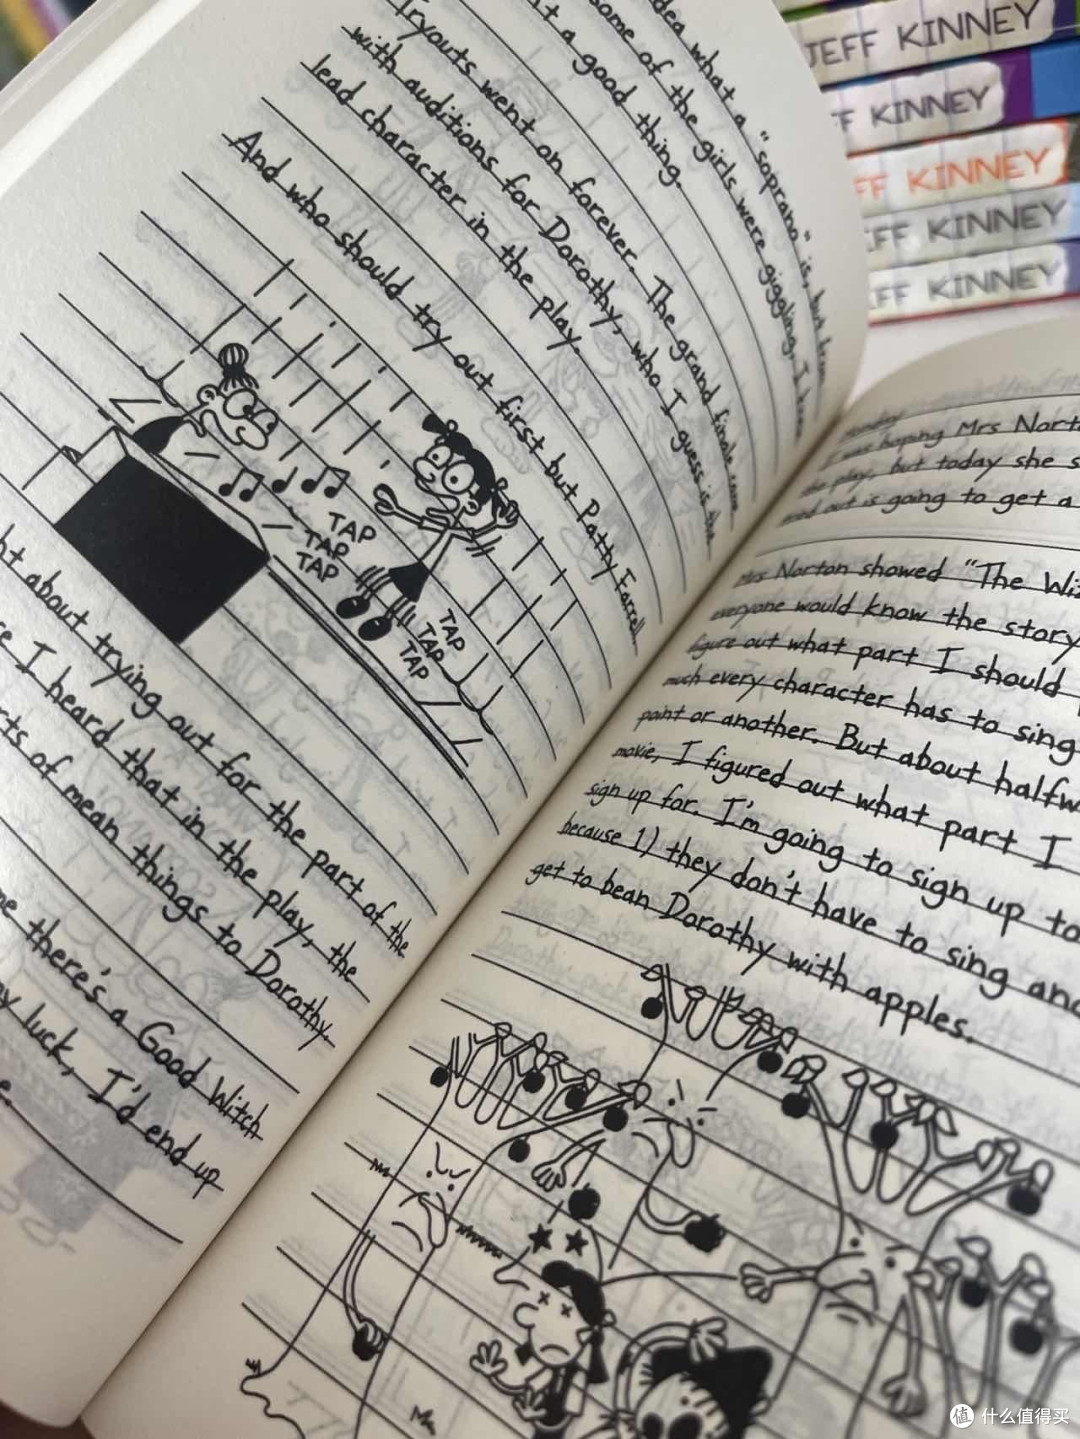 dea what a "soprano" is, but from
some of the girls were giggling, I knew
t a good thing.
Tryouts went on forever. The grand finale came
with auditions for Dorothy, who I guess is the
lead character in the play.
And who should try out first but Patty Farrell
TAP
TAP
TAP
TAP
TAP
TAP
ht about trying out for the part of the
se I heard that in the play, the
rts of mean things to Dorothy.
me there's a Good Witch
my luck, I'd end up
e.
JEFF KINNEY
FF KINNEY
FF KINNEY
EFF KINNEY
EFF KINNEY
Monday
I was hoping Mrs Nort
the play, but today she s
out is going to get a
Mrs Norton showed "The Wiz
everyone would know the story
figure out what part I should
much every character has to sing
point or another. But about halfw
movie, I figured out what part I
sign up for. I'm going to sign up to
because 1) they don't have to sing and
get to bean Dorothy with apples.
值 什么值得买